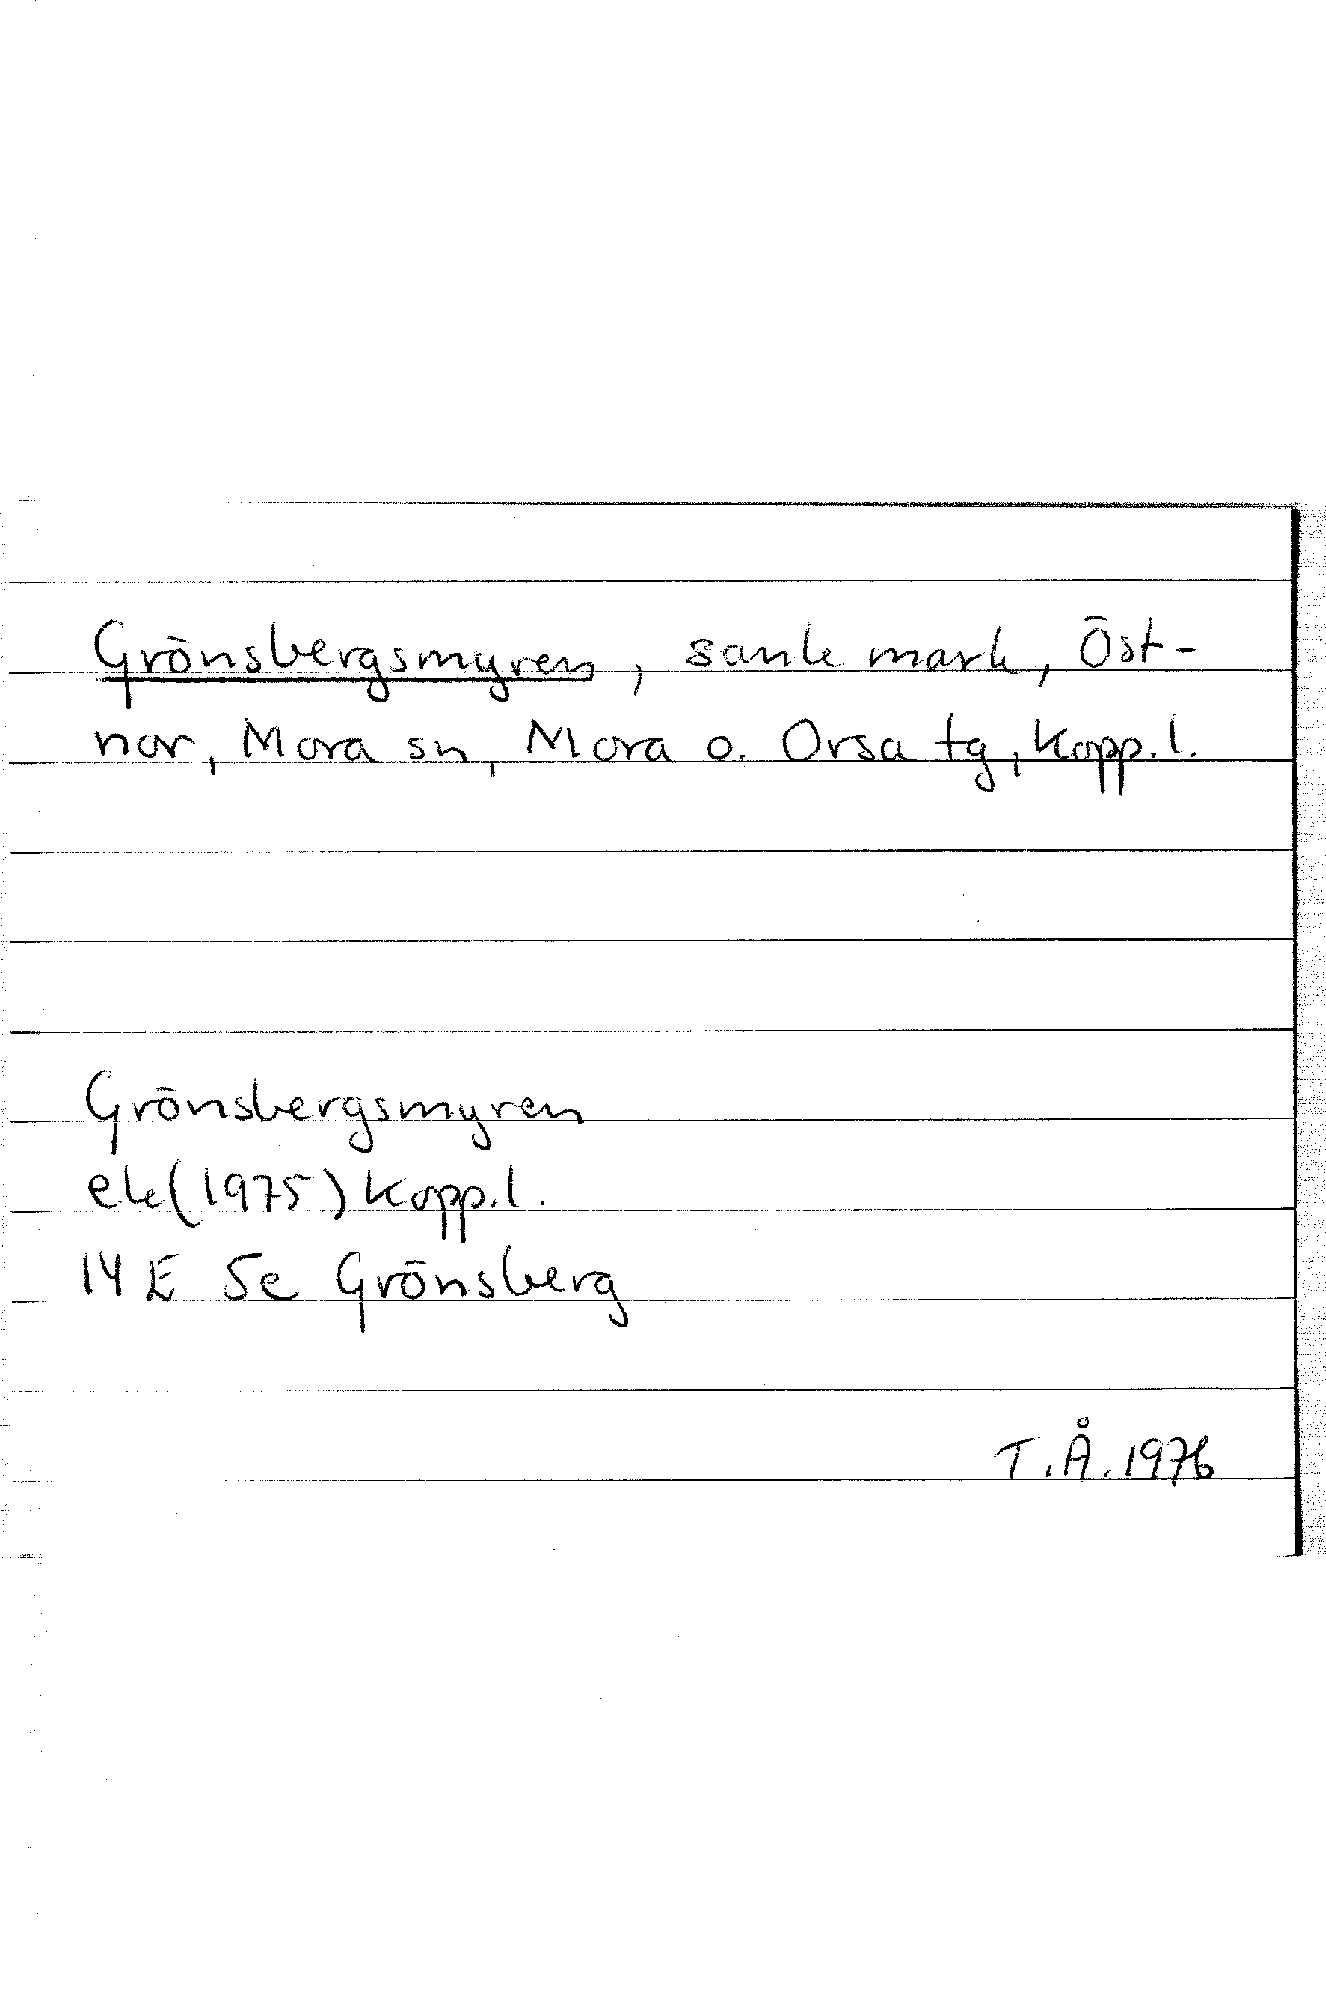 Grönsbergsmyren, sank mark, Öst-
nor, Mora sn, Mora o. Orsa tg, Kopp.l.
Grönsbergsmyren
ek(1975) Kopp.l.
14 E 5e Grönsberg
T.Å.1976